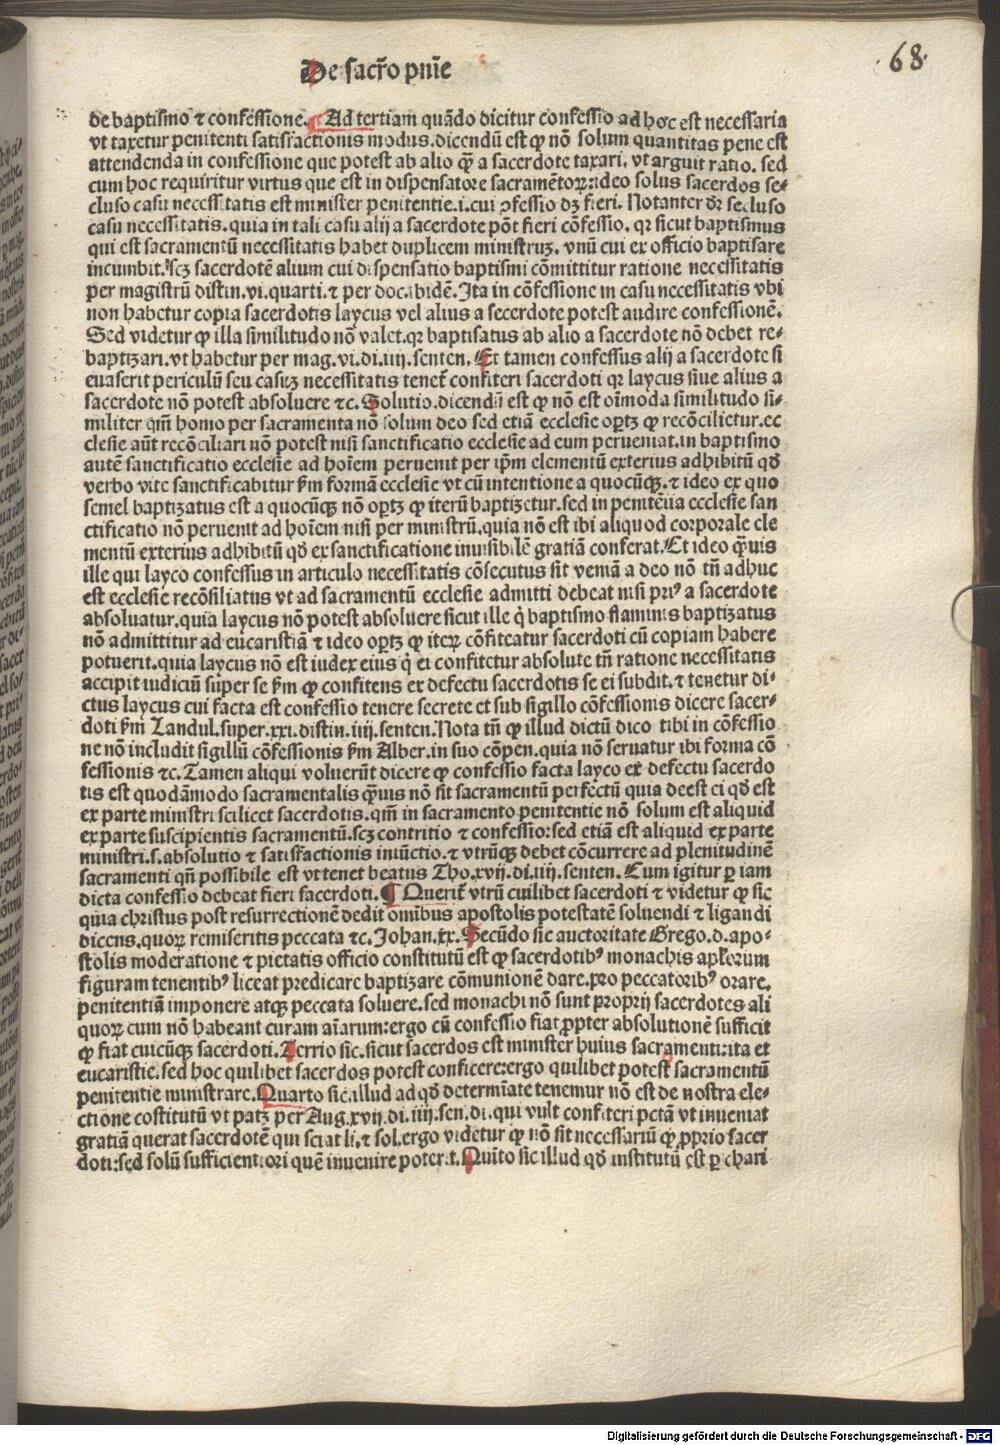 De sacr̄o pn̄ie
68.
de baptismo ⁊ confessione. ¶ Ad tertiam quādo dicitur confessio ad hoc est necessaria
vt taxetur penitenti satisfactionis modus. dicendū est ꝙ nō solum quantitas pene est
attendenda in confessione que potest ab alio q̄ȝ a sacerdote taxari. vt arguit ratio. sed
cum hoc requiritur virtus que est in dispensatore sacramētoꝝ: ideo solus sacerdos se⸗
cluso casu necessitatis est minister penitentie .i. cui ↄfessio dȝ fieri. Notanter dr̄ secluso
casu necessitatis. quia in tali casu alij a sacerdote pōt fieri cōfessio. qꝛ sicut baptismus
qui est sacramentū necessitatis habet duplicem ministruȝ. vnū cui ex officio baptisare
incumbit. scȝ sacerdotē alium cui dispensatio baptismi cōmittitur ratione necessitatis
per magistrū distin. vi. quarti. ⁊ per doc. ibidē. Ita in cōfessione in casu necessitatis vbi
non habetur copia sacerdotis laycus vel alius a secerdote potest audire confessionē.
Sed videtur ꝙ illa similitudo nō valet. qꝛ baptisatus ab alio a sacerdote nō debet re⸗
baptizari. vt habetur per mag. vi. di. iiij. senten. Et tamen confessus alij a sacerdote si
euaserit periculū seu casuȝ necessitatis tenet᷑ confiteri sacerdoti qꝛ laycus siue alius a
sacerdote nō potest absoluere ⁊c. Solutio. dicendū est ꝙ nō est oīmoda similitudo si⸗
militer qm̄ homo per sacramenta nō solum deo sed etiā ecclesie oportȝ ꝙ recōcilietur. ec
clesie aūt recōciliari nō potest nisi sanctificatio ecclesie ad eum perueniat. in baptismo
autē sanctificatio ecclesie ad hoīem peruenit per ip̄m elementū exterius adhibitū qd̄
verbo vite sanctificabitur ẜm formā ecclesie vt cū intentione a quocūqꝫ. ⁊ ideo ex quo
semel baptizatus est a quocūqꝫ nō oportȝ ꝙ iterū baptizetur. sed in penitētia ecclesie san
ctificatio nō peruenit ad hoīem nisi per ministrū. quia nō est ibi aliquod corporale ele
mentū exterius adhibitū qd̄ ex sanctificatione inuisibilē gratiā conferat. Et ideo q̄ȝuis
ille qui layco confessus in articulo necessitatis cōsecutus sit veniā a deo nō tn̄ adhuc
est ecclesie recōsiliatus vt ad sacramentū ecclesie admitti debeat nisi priꝰ a sacerdote
absoluatur. quia laycus nō potest absoluere sicut ille q̇ baptismo flaminis baptizatus
nō admittitur ad eucaristiā ⁊ ideo oportȝ ꝙ iteꝝ cōfiteatur sacerdoti cū copiam habere
potuerit. quia laycus nō est iudex eius q̇ ei confitetur absolute tn̄ ratione necessitatis
accipit iudiciū super se ẜm ꝙ confitens ex defectu sacerdotis se ei subdit. ⁊ tenetur di⸗
ctus laycus cui facta est confessio tenere secrete et sub sigillo cōfessionis dicere sacer⸗
doti ẜm Landul. super. xxi. distin. iiij. senten. Nota tn̄ ꝙ illud dictū dico tibi in cōfessio
ne nō includit sigillū cōfessionis ẜm Alber. in suo cōpen. quia nō seruatur ibi forma cō
fessionis ⁊c. Tamen aliqui voluerūt dicere ꝙ confessio facta layco ex defectu sacerdo
tis est quodāmodo sacramentalis q̄ȝuis nō sit sacramentū perfectū quia deest ei qd̄ est
ex parte ministri scilicet sacerdotis. qm̄ in sacramento penitentie nō solum est aliquid
ex parte suscipientis sacramentū. scȝ contritio ⁊ confessio: sed etiā est aliquid ex parte
ministri. s. absolutio ⁊ satisfactionis iniūctio. ⁊ vtrūqꝫ debet cōcurrere ad plenitudinē
sacramenti qn̄ possibile est vt tenet beatus Tho. xvij. di. iiij. senten. Cum igitur ꝑ iam
dicta confessio debeat fieri sacerdoti. ¶ Querit᷑ vtrū cuilibet sacerdoti ⁊ videtur ꝙ sic
quia christus post resurrectionē dedit omībus apostolis potestatē soluendi ⁊ ligandi
dicens. quoꝝ remiseritis peccata ⁊c. Johan. xx. Secūdo sic auctoritate Grego. d. apo⸗
stolis moderatione ⁊ pietatis officio constitutū est ꝙ sacerdotibꝰ monachis apl̄orum
figuram tenentibꝰ liceat predicare baptizare cōmunionē dare. pro peccatoribꝰ orare.
penitentiā imponere atqꝫ peccata soluere. sed monachi nō sunt proprij sacerdotes ali
quoꝝ cum nō habeant curam aīarum: ergo cū confessio fiat ꝓpter absolutionē sufficit
ꝙ fiat cuicūqꝫ sacerdoti. Terrio sic. sicut sacerdos est minister huius sacramenti: ita et
eucaristie. sed hoc quilibet sacerdos potest conficere: ergo quilibet potest sacramentū
penitentie ministrare. Quarto sic illud ad qd̄ determīate tenemur nō est de nostra ele⸗
ctione costitutū vt patȝ per Aug. xvij. di. iiij. sen. di. qui vult confiteri pctā vt inueniat
gratiā querat sacerdotē qui sciat li. ⁊ sol. ergo videtur ꝙ nō sit necessariū ꝙ ꝓprio sacer
doti: sed solū sufficientiori quē inuenire poterit. Quīto sic illud qd̄ institutū est ꝑ chari
Digitalisierung gefördert durch die Deutsche Forschungsgemeinschaft - DFG